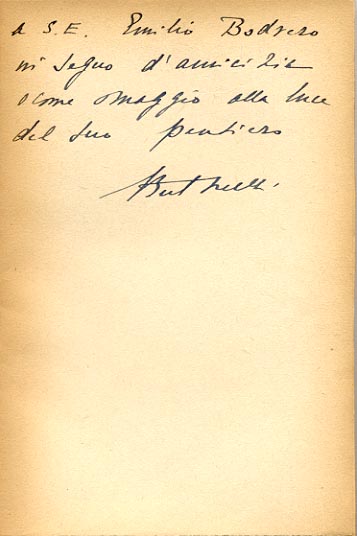 A S.E. Emilio Bodrero
in segno d'amicizia
e come omaggio alla luce
del suo pensiero